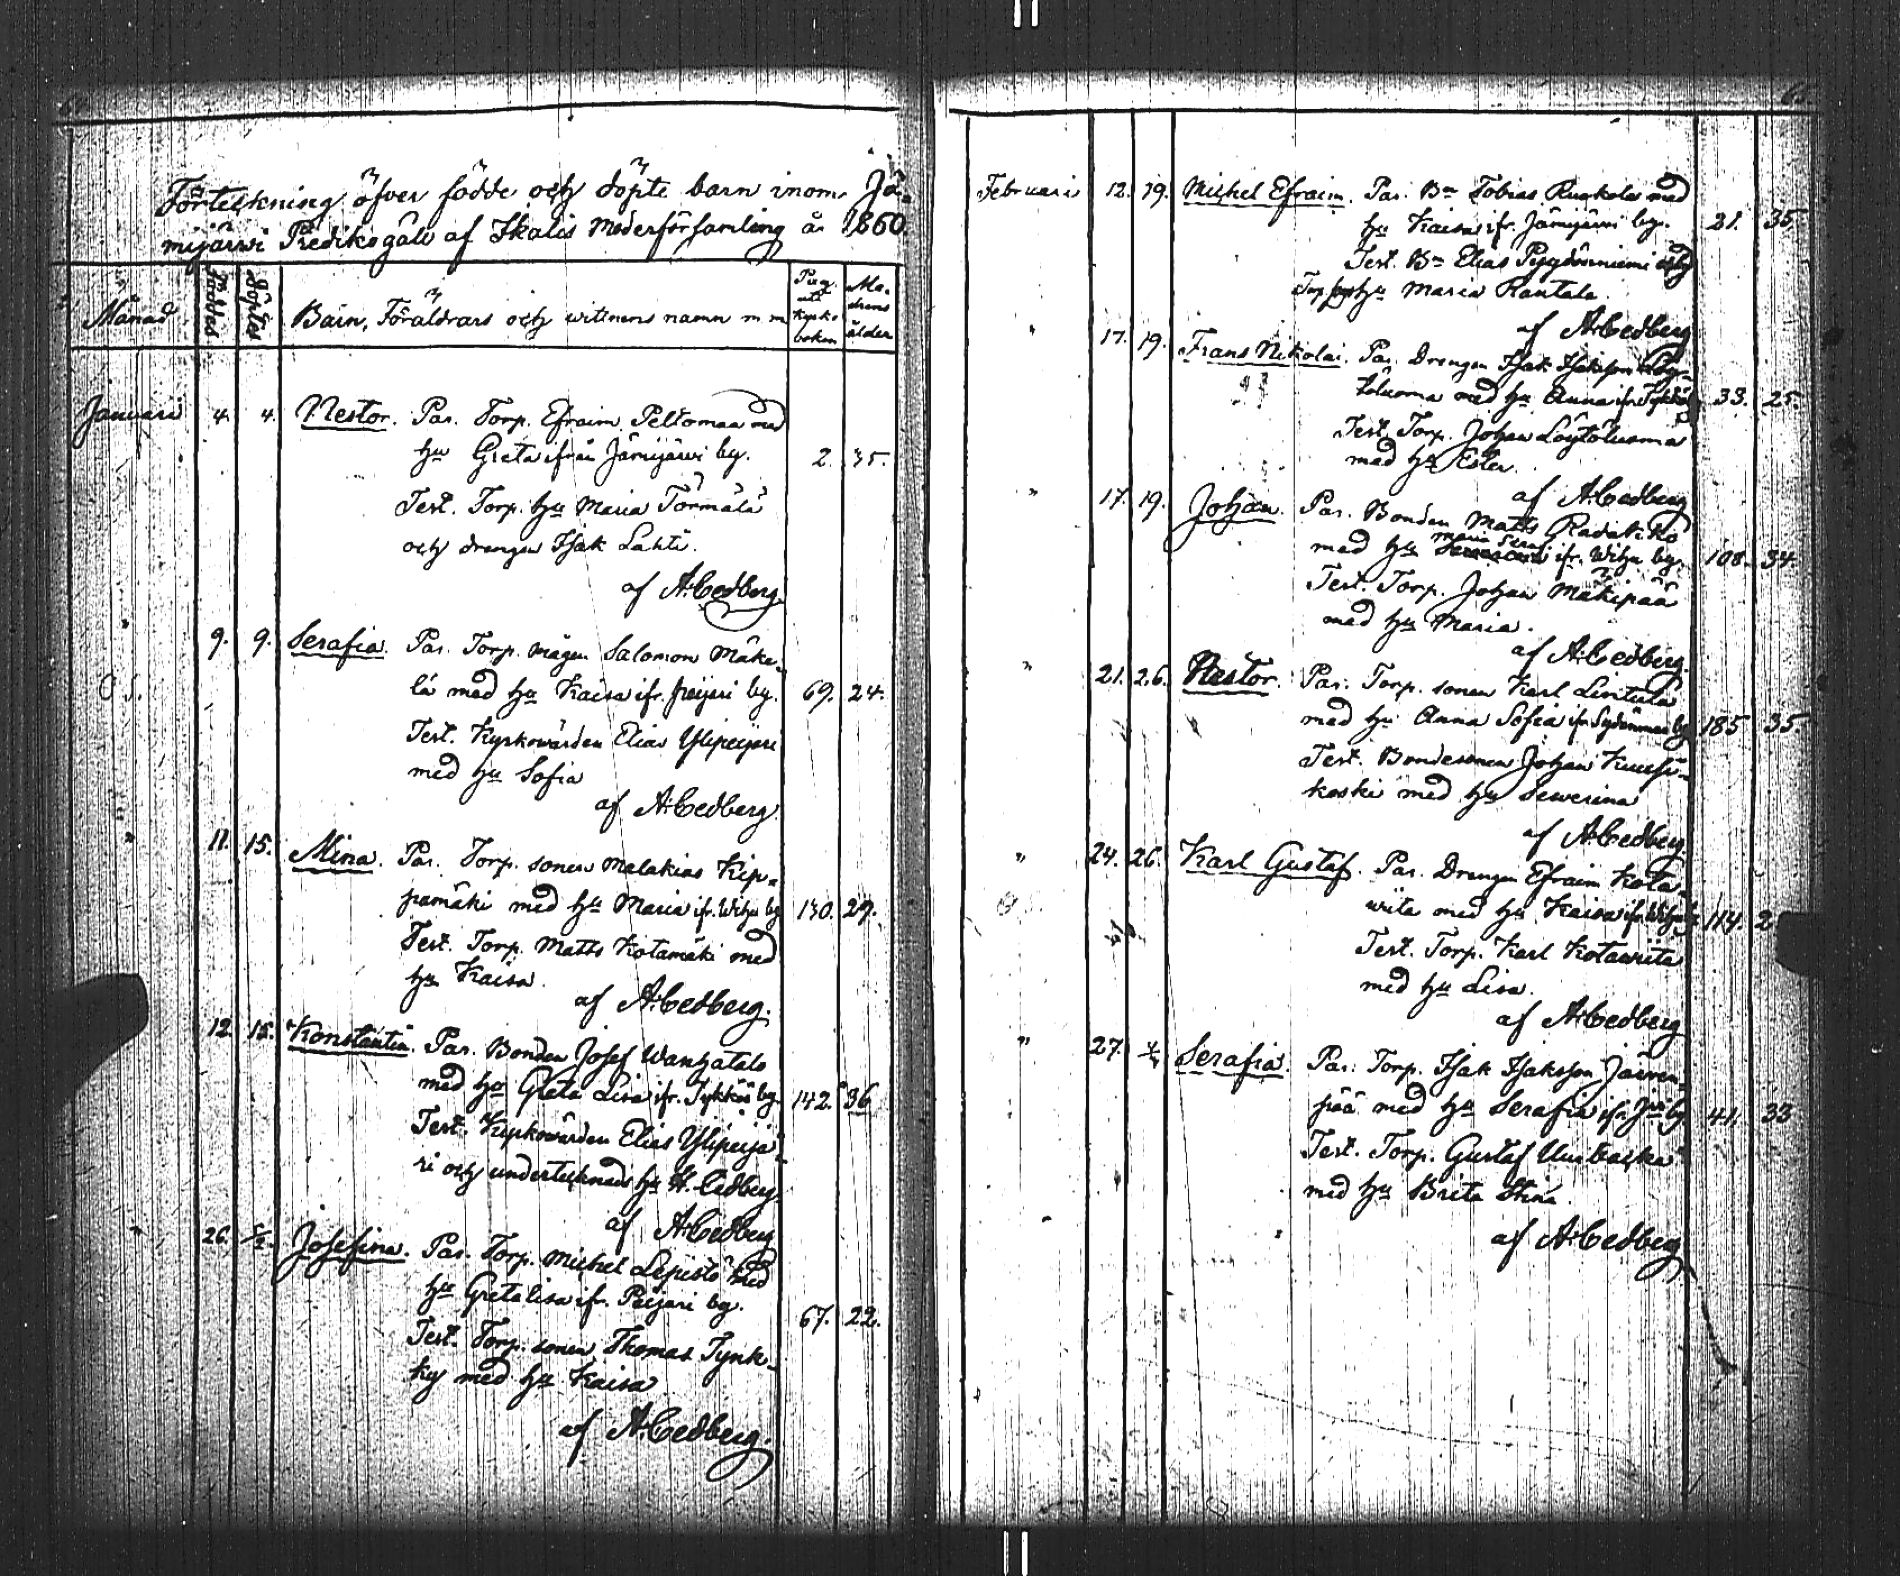 Förteckning öfver födde och döpte barn inom Jä-
mijärwi Predikogäll af Ikalis Moderförsamling år 1860.
Månad
Föddes
Döptes
Barn, Föräldrars och wittnens namn m m
Pag. uti Kyrkoboken
Modrens ålder
Januari 4. 4. Nestor. Par. Torp. Efraim Peltomaa med
hu Greta ifrån Jämijärwi by. 2. 35.
Test. Torp. hu Maria Törmälä
och drengen Isak Lahti.
af A. Cedberg
" 9. 9. Serafia. Par. Torp. mågen Salomon Mäke-
lä med hu Kaisa ifr. Peijari by. 69. 24.
Test. Kyrkowärden Elias Ylipeijari
med hu Sofia
af A. Cedberg
" 11. 15. Mina. Par. Torp. sonen Malakias Kip-
pamäki med hu Maria ifr. Wihu by 130. 29.
Test. Torp. Matts Kotamäki med
hu Kaisa.
af A. Cedberg.
12. 15. Konstantin. Par. Bonden Josef Wanhatalo
med hu Greta Lisa ifr. Tykköö by. 142. 36
Test. Kyrkowärden Elias Ylipeija-
ri och undertecknads hu H. Cedberg.
af A. Cedberg
" 26. 5/2. Josefina. Par. Torp. Michel Lepistö med
hu Greta Lisa ifr. Peijari by. 67. 22.
Test. Torp. sonen Thomas Tynk-
ky med hu Kaisa
af A. Cedberg.
65
Februari 12. 19. Michel Efraim. Par. Bn Tobias Ruokola med
hu Kaisa ifr. Jämijärwi by. 21. 35.
Test. Bn Elias Pyydysniemi och
Torp hu Maria Rantala.
af A. Cedberg
" 17. 19. Frans Nikolai. Par. Drengen Isak Isaksson Löy-
töluoma med hu Anna ifr. Tykköö 33. 25.
Test. Torp. Johan Löytöluoma
med hu Ester.
af A. Cedberg
" 17. 19. Johan. Par. Bonden Matts Radatiko
med hu Maria ifr. Wihu by. 108. 34.
Test. Torp. Johan Mäkipää
med hu Maria.
af A. Cedberg.
" 21. 26. Nestor. Par. Torp. sonen Karl Lintula
med hu Anna Sofia ifr. Sydänmaa by 185 35.
Test. Bondesonen Johan Kuusi-
koski med hu Sewerina
af A. Cedberg
" 24. 26. Karl Gustaf. Par. Drengen Efraim Kota-
wiita med hu Kaisa ifr. Wihu by 114. 2
Test. Torp. Karl Kotawiita
med hu Lisa.
af A. Cedberg
" 27. 4/3 Serafia. Par. Torp. Isak Isaksson Järwen-
pää med hu Serafia ifr. Jwi by 41. 33
Test. Torp. Gustaf Uusbacka
med hu Brita Stina.
af A. Cedberg